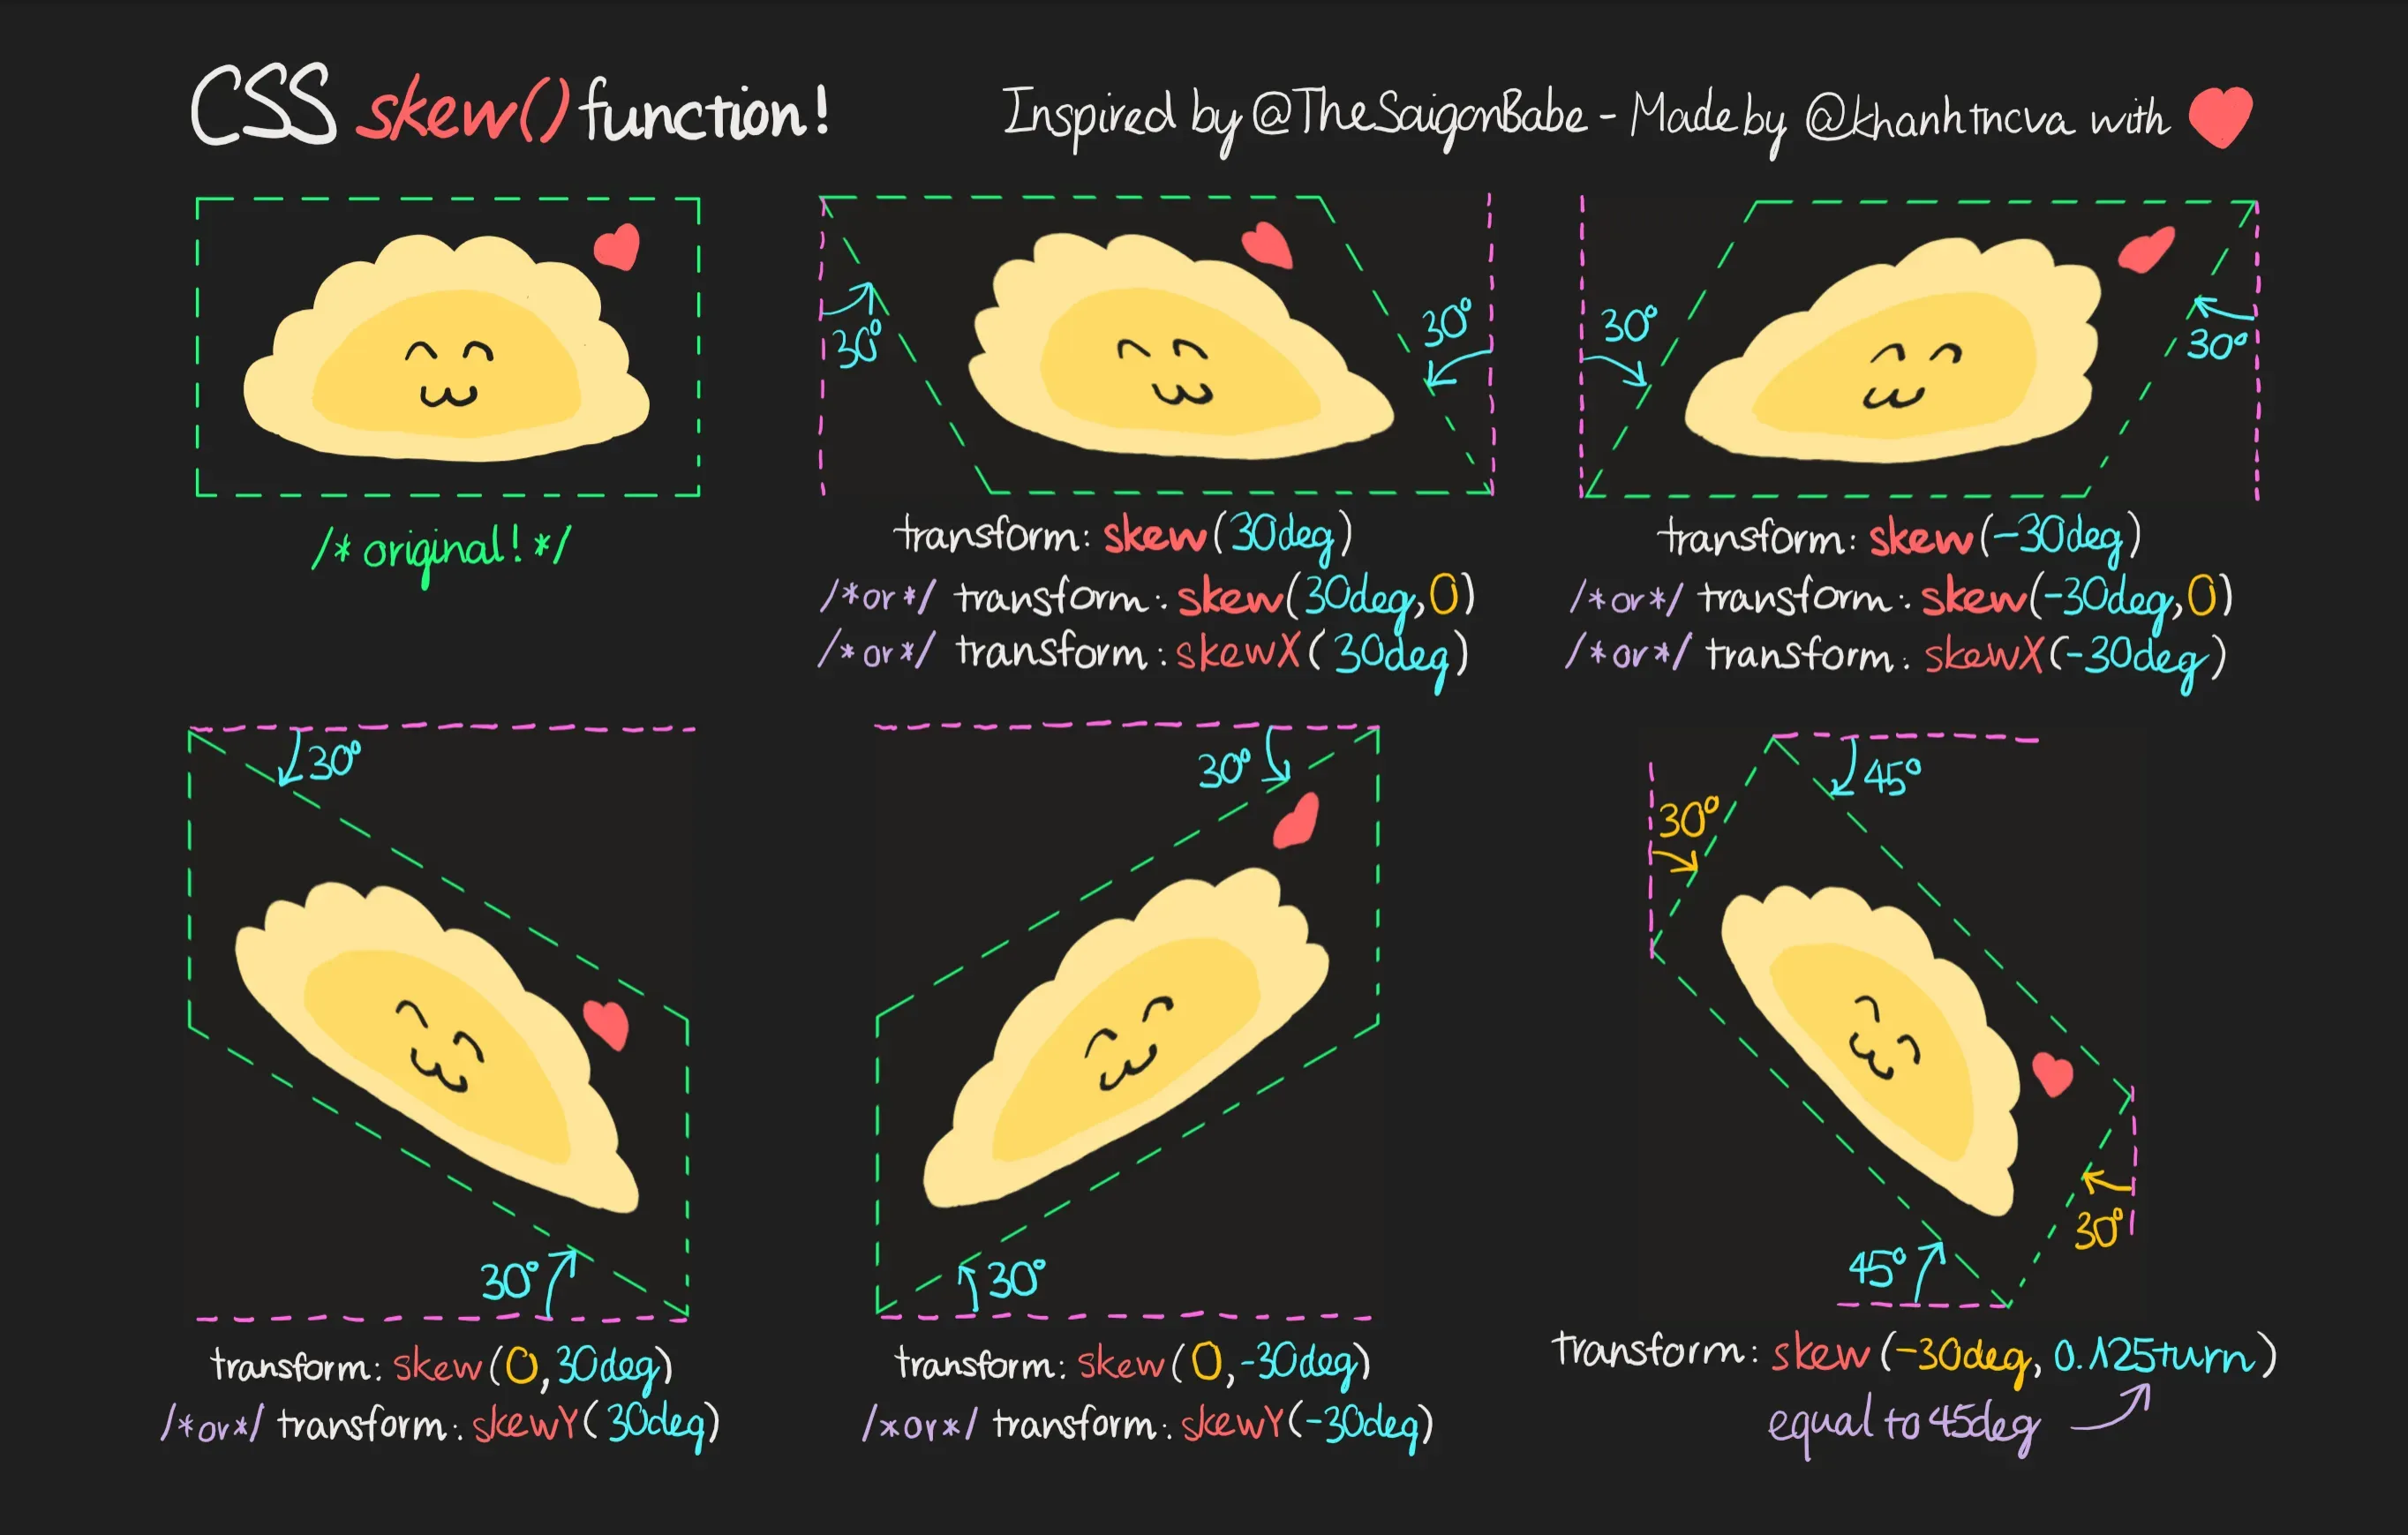 CSS skew() function!
Inspired by @TheSaigonBabe - Made by @khanhtncva with
30°
30°
30°
30°
/* original! */
transform: skew(30deg)
/*or*/ transform: skew(30deg,0)
/*or*/ transform: skewX(30deg)
transform: skew(-30deg)
/*or*/ transform: skew(-30deg,0)
/*or*/ transform: skewX(-30deg)
30°
30°
transform: skew(0,30deg)
/*or*/ transform: skewY(30deg)
30°
30°
transform: skew(0,-30deg)
/*or*/ transform: skewY(-30deg)
45°
30°
30°
45°
transform: skew(-30deg, 0.125turn)
equal to 45deg